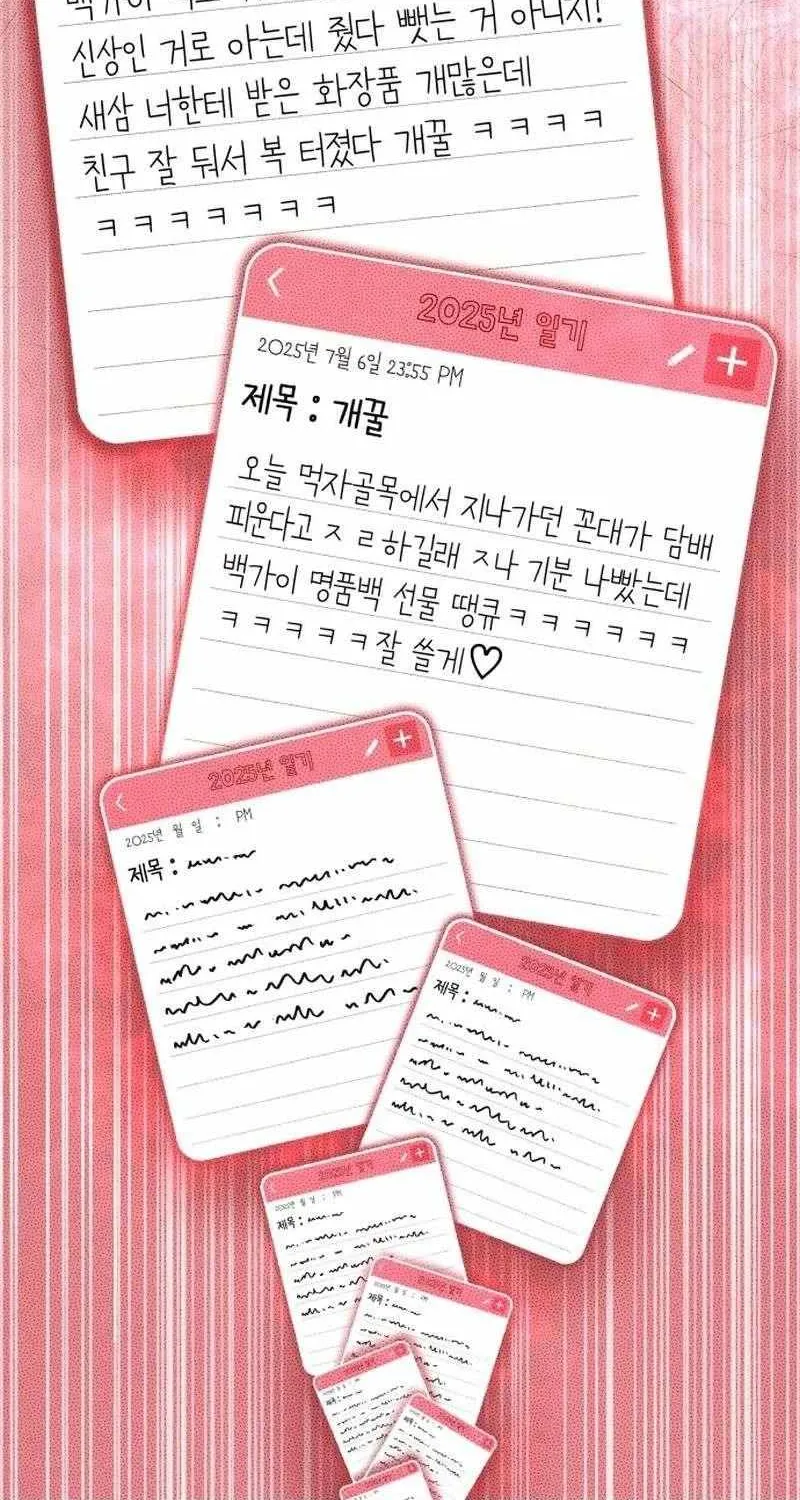 신상인 거로 아는데 줬다 뺏는 거 아니지!
새삼 너한테 받은 화장품 개많은데
친구 잘 둬서 복 터졌다 개꿀 ㅋㅋㅋㅋ
ㅋㅋㅋㅋㅋㅋㅋ
2025년 일기
2025년 7월 6일 23:55 PM
제목 : 개꿀
오늘 먹자골목에서 지나가던 꼰대가 담배
피운다고 ㅈㄹ하길래 ㅈ나 기분 나빴는데
백가이 명품백 선물 땡큐ㅋㅋㅋㅋㅋㅋ
ㅋㅋㅋㅋㅋ잘 쓸게♡
2025년 일기
2025년 월 일 : PM
제목 :
2025년 일기
2025년 월 일 : PM
제목 :
2025년 일기
2025년 월 일 : PM
제목 :
2025년 일기
2025년 월 일 : PM
제목 :